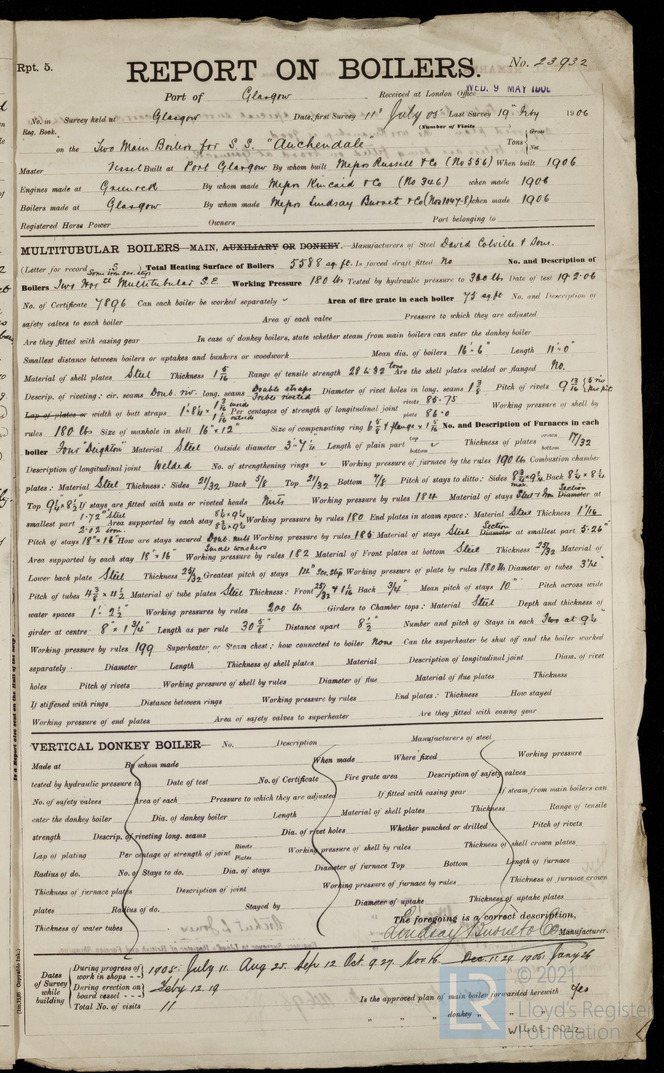 Rpt. 5.
REPORT ON BOILERS.
No. 23932
Port of Glasgow Received at London Office WED. 9 MAY 1906
No. in Survey held at Glasgow Date, first Survey 11th July 05 Last Survey 19th Feby 1906
Reg. Book. (Number of Visits
on the Two Main Boilers for S.S. "Auchendale" Tons Gross Net
Master Vessel Built at Port Glasgow By whom built Messrs Russell & Co (No 556) When built 1906
Engines made at Greenock By whom made Messrs Kincaid & Co (No 346) when made 1906
Boilers made at Glasgow By whom made Messrs Lindsay Burnet & Co (Nos 1047-8) when made 1906
Registered Horse Power Owners Port belonging to
MULTITUBULAR BOILERS—MAIN, AUXILIARY OR DONKEY.—Manufacturers of Steel David Colville & Sons.
(Letter for record S) Total Heating Surface of Boilers 5588 sq. ft. Is forced draft fitted No No. and Description of
Boilers Two Multitubular S.E. Working Pressure 180 lbs Tested by hydraulic pressure to 360 lbs Date of test 19.2.06
No. of Certificate 7896 Can each boiler be worked separately Area of fire grate in each boiler 75 sq ft No. and Description of
safety valves to each boiler Area of each valve Pressure to which they are adjusted
Are they fitted with easing gear In case of donkey boilers, state whether steam from main boilers can enter the donkey boiler
Smallest distance between boilers or uptakes and bunkers or woodwork Mean dia. of boilers 16'-6" Length 11'-0"
Material of shell plates Steel Thickness 1 5/16 Range of tensile strength 28 to 32 tons Are the shell plates welded or flanged No.
Descrip. of riveting: cir. seams Doub. riv. long. seams Double straps Treble riveted Diameter of rivet holes in long. seams 1 3/8 Pitch of rivets 9 13/16
Lap of plates or width of butt straps Per centages of strength of longitudinal joint rivets 85.75 plate 86.0 Working pressure of shell by
rules 180 lbs Size of manhole in shell 16" x 12" Size of compensating ring No. and Description of Furnaces in each
boiler Four "Deighton" Material Steel Outside diameter Length of plain part top bottom Thickness of plates crown bottom 17/32
Description of longitudinal joint Welded No. of strengthening rings Working pressure of furnace by the rules 190 lbs Combustion chamber
plates: Material Steel Thickness: Sides 21/32 Back 5/8 Top 21/32 Bottom 7/8 Pitch of stays to ditto: Sides Back 8 1/4 x 8 1/2
Top If stays are fitted with nuts or riveted heads Nuts Working pressure by rules 184 Material of stays Steel & Iron Diameter at Section
smallest part 1.72" Steel 2.02 Iron Area supported by each stay Working pressure by rules 180 End plates in steam space: Material Steel Thickness 1 1/16
Pitch of stays 18" x 16" How are stays secured Doub. nuts Small washers Working pressure by rules 185 Material of stays Steel Diameter Section at smallest part 5.26"
Area supported by each stay 18" x 16" Working pressure by rules 182 Material of Front plates at bottom Steel Thickness 25/32 Material of
Lower back plate Steel Thickness 25/32 Greatest pitch of stays Working pressure of plate by rules 180 lbs Diameter of tubes 3 1/4"
Pitch of tubes 4 3/8 x 4 1/2 Material of tube plates Steel Thickness: Front Back 3/4" Mean pitch of stays 10" Pitch across wide
water spaces 1'-2 1/2" Working pressures by rules 200 lb Girders to Chamber tops: Material Steel Depth and thickness of
girder at centre 8" x 1 3/4" Length as per rule 30 5/8 Distance apart 8 1/2" Number and pitch of Stays in each Two at 9 1/4
Working pressure by rules 199 Superheater or Steam chest; how connected to boiler None Can the superheater be shut off and the boiler worked
separately Diameter Length Thickness of shell plates Material Description of longitudinal joint Diam. of rivet
holes Pitch of rivets Working pressure of shell by rules Diameter of flue Material of flue plates Thickness
If stiffened with rings Distance between rings Working pressure by rules End plates: Thickness How stayed
Working pressure of end plates Area of safety valves to superheater Are they fitted with easing gear
VERTICAL DONKEY BOILER— No. Description Manufacturers of steel
Made at By whom made When made Where fixed Working pressure
tested by hydraulic pressure to Date of test No. of Certificate Fire grate area Description of safety valves
No. of safety valves Area of each Pressure to which they are adjusted If fitted with easing gear If steam from main boilers can
enter the donkey boiler Dia. of donkey boiler Length Material of shell plates Thickness Range of tensile
strength Descrip. of riveting long. seams Dia. of rivet holes Whether punched or drilled Pitch of rivets
Lap of plating Per centage of strength of joint Rivets Plates Working pressure of shell by rules Thickness of shell crown plates
Radius of do. No. of Stays to do. Dia. of stays Diameter of furnace Top Bottom Length of furnace
Thickness of furnace plates Description of joint Working pressure of furnace by rules Thickness of furnace crown
plates Radius of do. Stayed by Diameter of uptake Thickness of uptake plates
Thickness of water tubes The foregoing is a correct description,
Lindsay Burnet & Co Manufacturer.
Dates of Survey while building
During progress of work in shops - - 1905: July 11. Aug 25. Sep 12 Oct. 9. 27. Nov. 16. Dec. 11. 29. 1906: Jany 26
During erection on board vessel - - - Feby 12. 19
Total No. of visits 11 Is the approved plan of main boiler forwarded herewith Yes
" " " donkey " " "
© 2021
LR
Lloyd's Register
Foundation